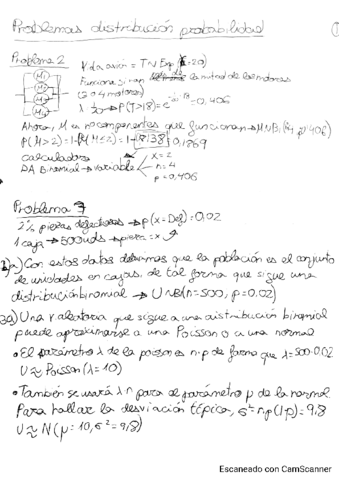 Problemas distribución probabilidad
Problema 2
V de avión = TN Exp ( =20)
Funciona si nan la mitad de los motores
(2 o 4 motores)
M1
M2
M3
M4
λ 1/20 → P(T>18)=e = 0,406
Ahora, M en nº componentes que funcionan → M~B(4, 0,406)
P(M>2) = 1- P(M≤2) = 1- 0,8138 0,1869
calculadora
DA Binomial → variable
x = 2
n = 4
p = 0,406
Problema 7
2% piezas defectuosas → p(x=Def) = 0,02
1 caja → 500 uds → piezas = x
a) Con estos datos decimos que la población es el conjunto
de unidades en cajas, de tal forma que sigue una
distribución binomial → U~B(n=500, p=0.02)
Una v aleatoria que sigue a una distribución binomial
puede aproximarse a una Poisson o a una normal
• El parámetro λ de la poisson es n·p de forma que λ=500·0.02
U≈Poisson(λ=10)
• También se usará λ para el parámetro μ de la normal
Para hallar la desviación típica, σ²=n·p(1-p)=9,8
U≈N(μ=10, σ²=9,8)
Escaneado con CamScanner